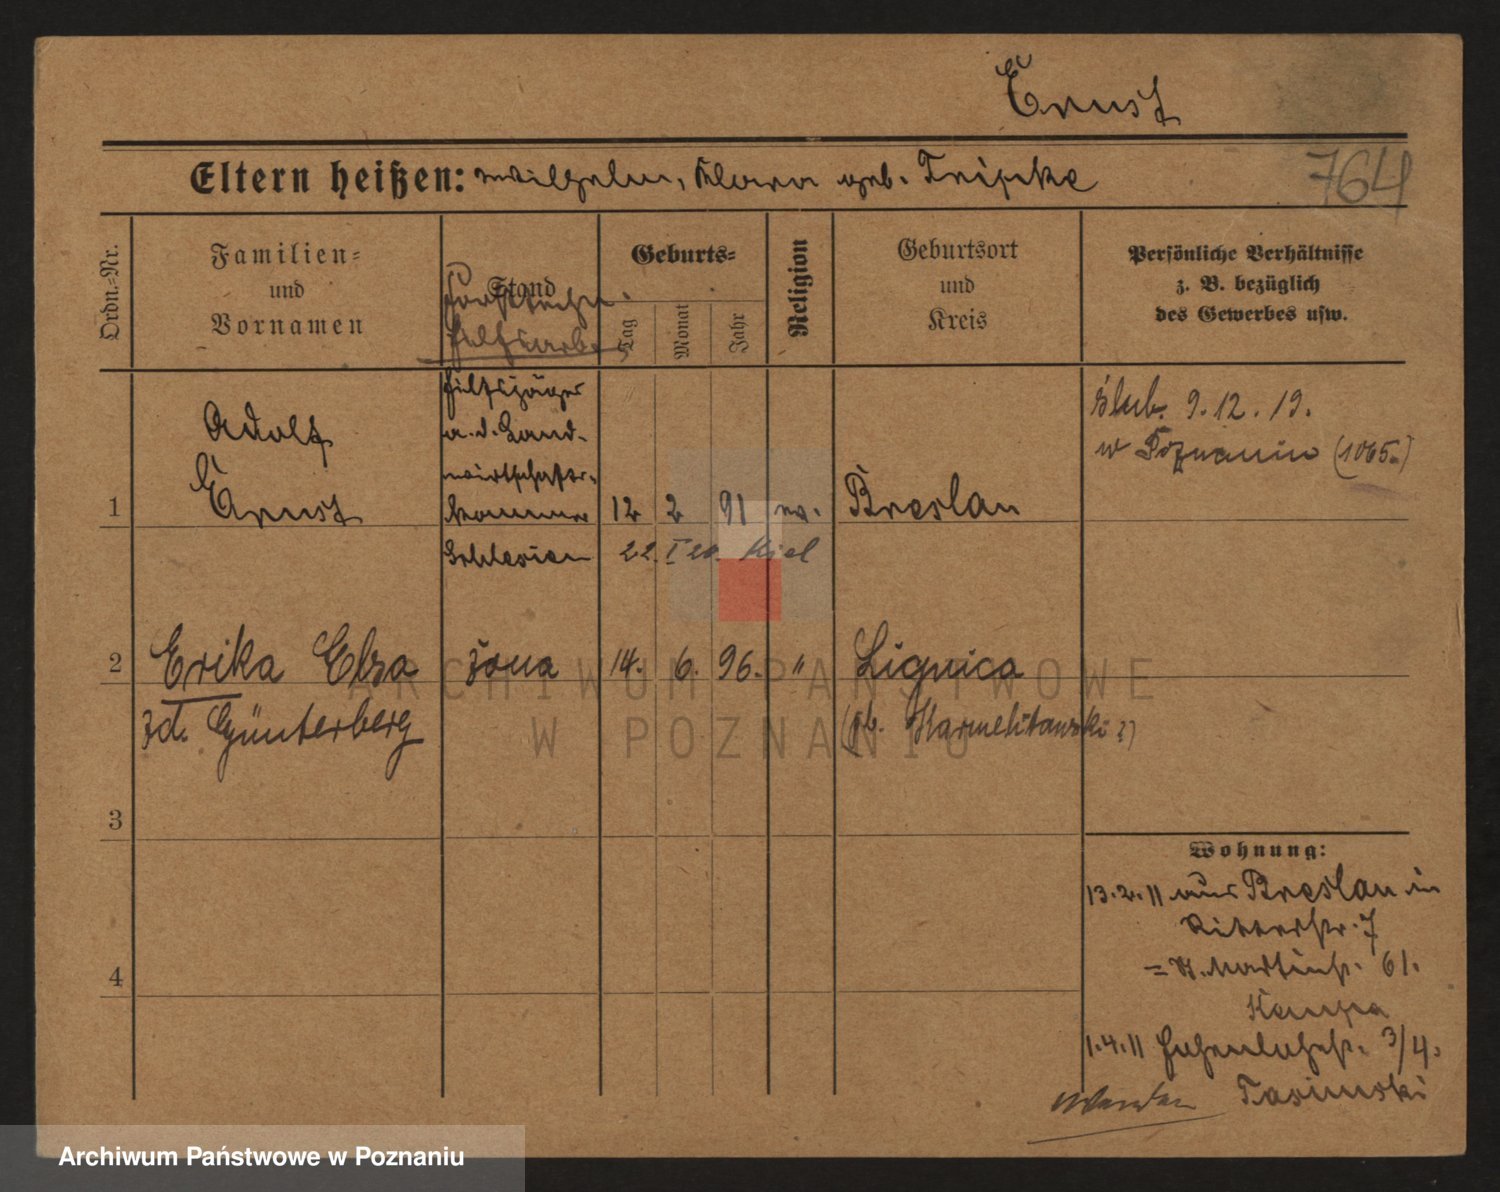 Ernst
Eltern heißen: Wilhelm, Klara geb. Tripke
764
Ordn.-Nr.
Familien-
und
Vornamen
Stand
Geburts-
Tag
Monat
Jahr
Religion
Geburtsort
und
Kreis
Persönliche Verhältnisse
z. B. bezüglich
des Gewerbes usw.
1
Adolf
Ernst
Hilfsjäger
a. d. Land-
wirtschafts-
kammer
Schlesien
12 2 91 ev.
22. I 20. Kiel
Breslau
ślub. 9. 12. 19.
w Poznaniu (1065.)
2
Erika Elsa
zd. Günterberg
żona
14. 6. 96. "
Lignica
Karmelitawski ?)
3
4
Wohnung:
13.2.11 aus Breslau in
Ritterstr. 7
= St. Martinstr. 61.
Kempa
1.4.11 Hohenlohestr. 3/4.
Tasimski
ARCHIWUM PAŃSTWOWE
W POZNANIU
Archiwum Państwowe w Poznaniu